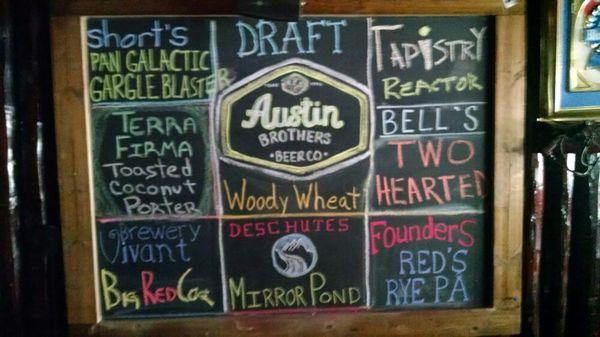 short's
PAN GALACTIC
GARGLE BLASTER
TERRA
FIRMA
Toasted
Coconut
PORTER
Brewery
Vivant
Big Red Coq
DRAFT
Austin
BROTHERS
BEER CO
Woody Wheat
DESCHUTES
MIRROR POND
TAPiSTRY
REACTOR
BELL'S
TWO
HEARTED
Founders
RED'S
RYE PA